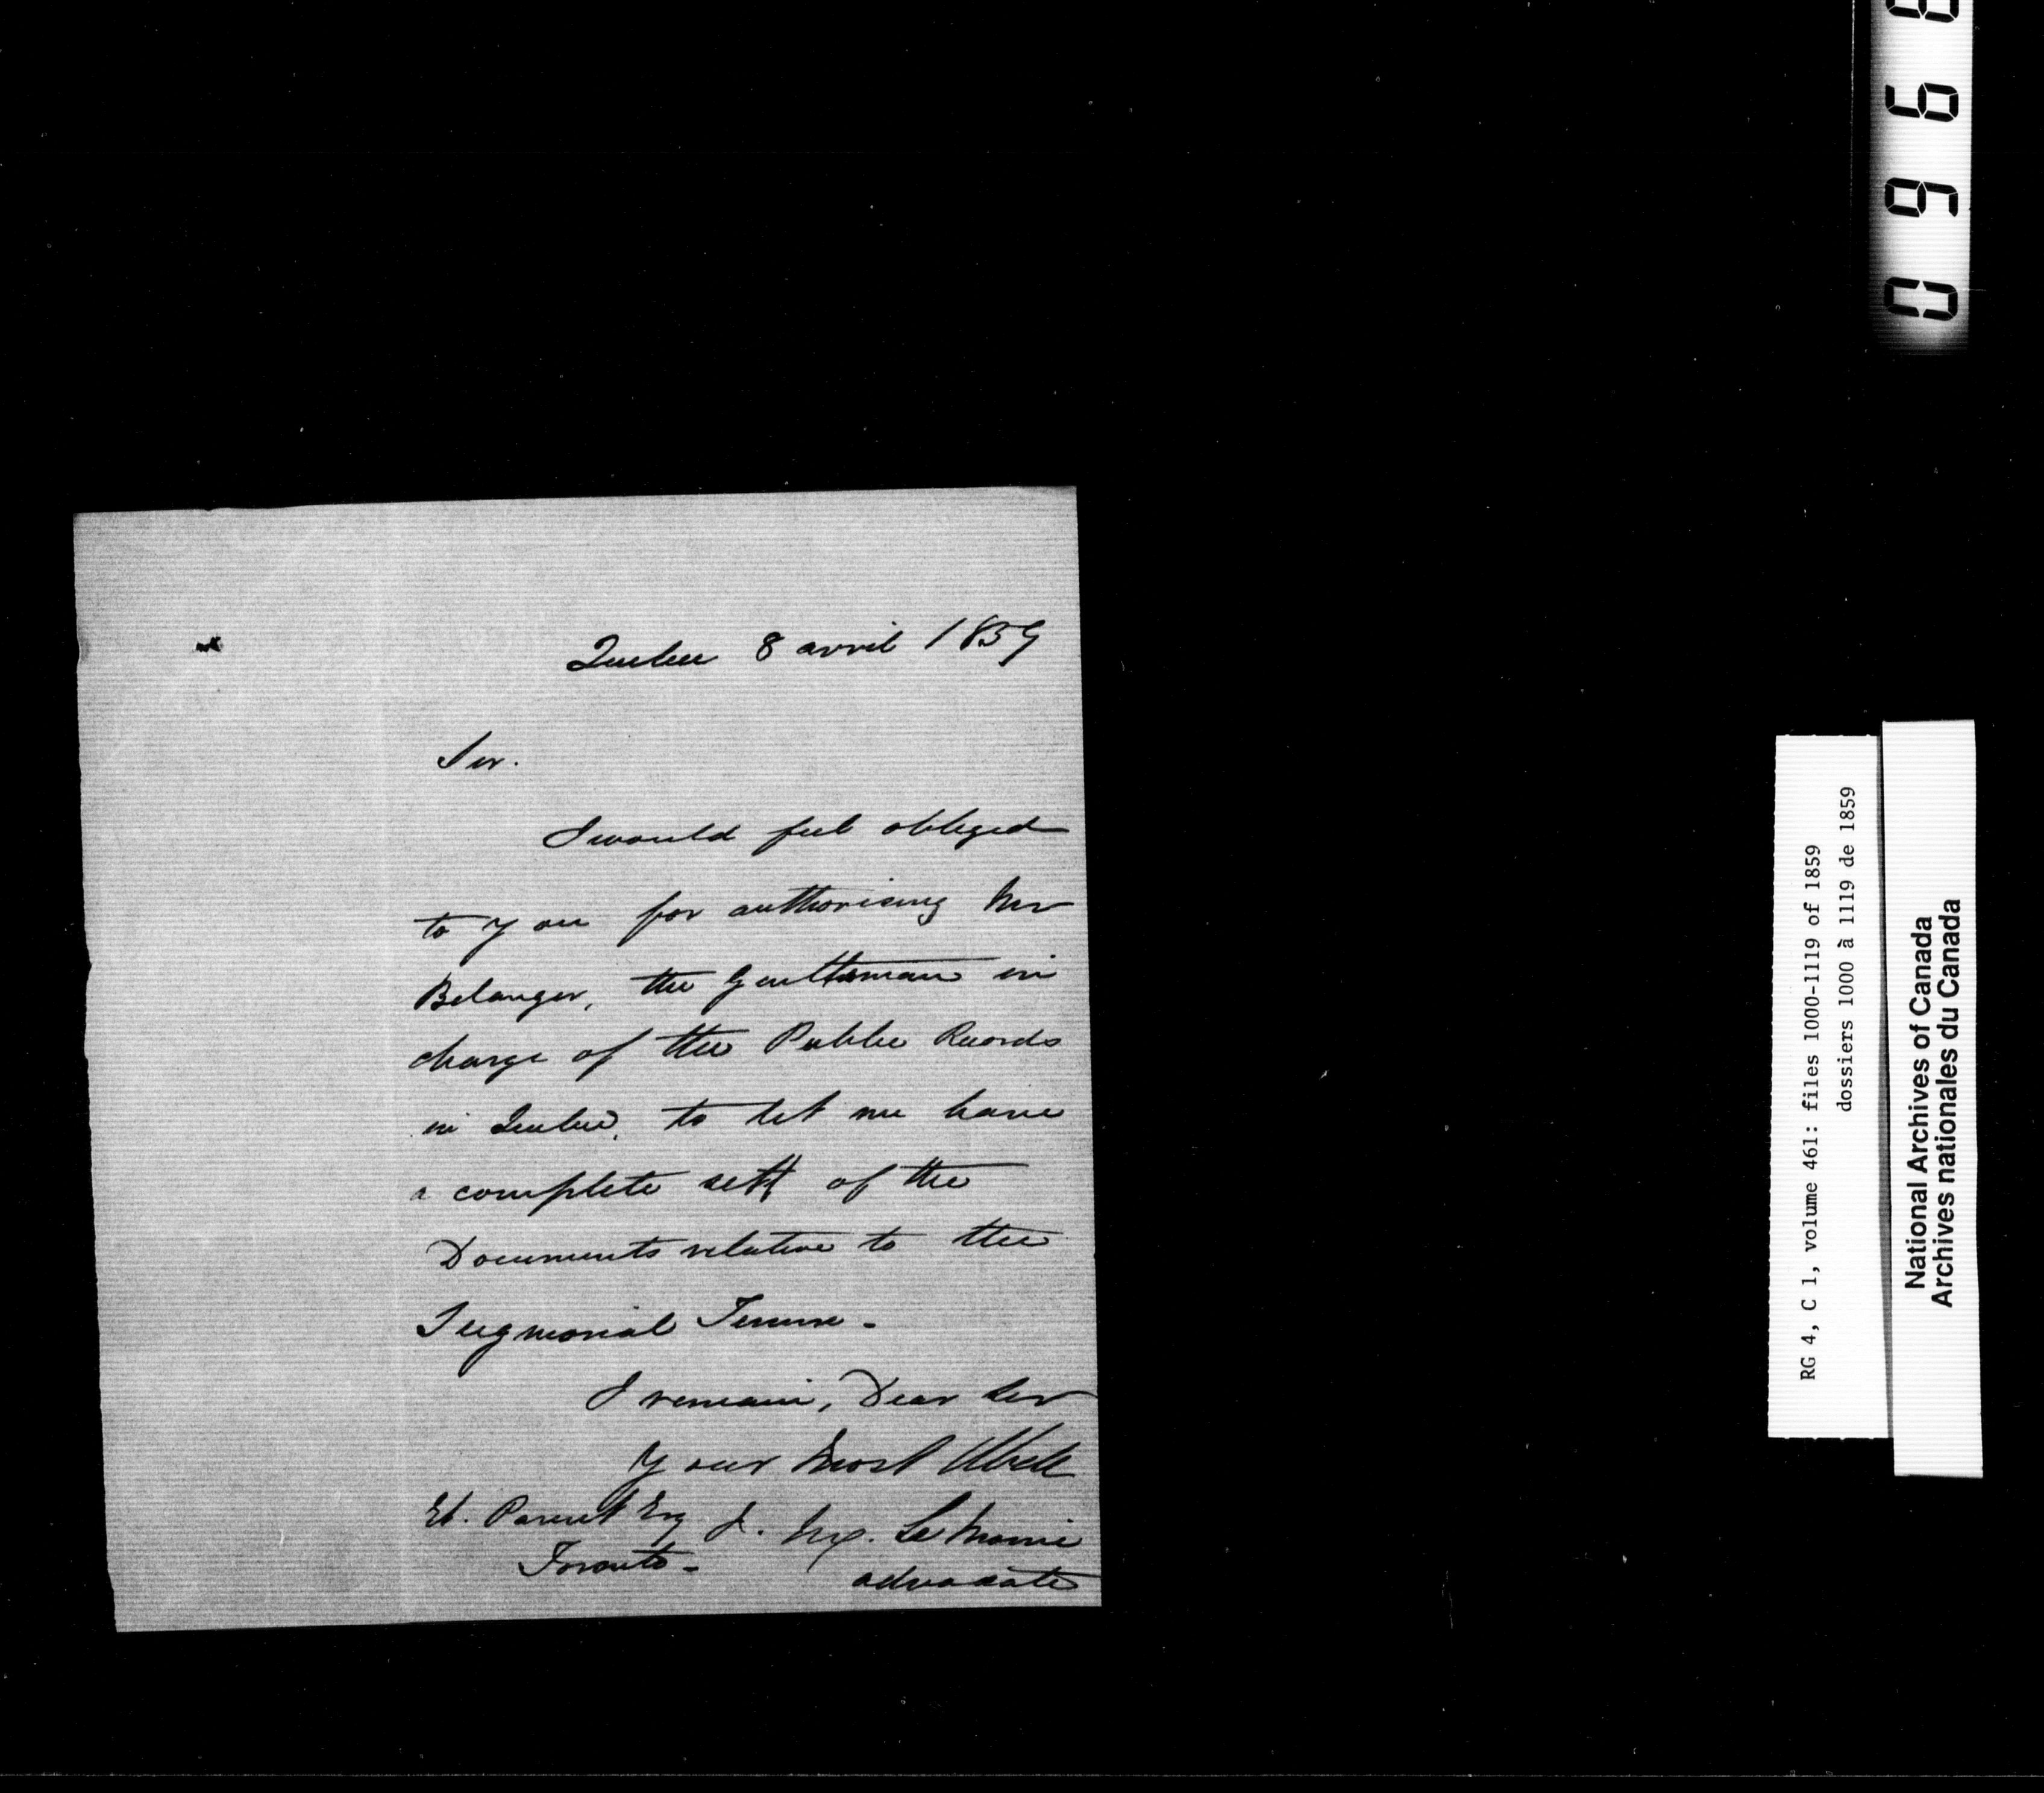 Quebec 8 avril 1859
Sir.
I would feel obliged
to you for authorising Mr
Belanger, the Gentleman in
charge of the Public Records
in Quebec, to let me have
a complete sett of the
Documents relative to the
Seigniorial Tenure -
I remain, Dear Sir
Your Most
Et. Parent Esq J. M. LeMoine
Toronto - advocate
096
RG 4, C 1, volume 461: files 1000-1119 of 1859
dossiers 1000 à 1119 de 1859
National Archives of Canada
Archives nationales du Canada